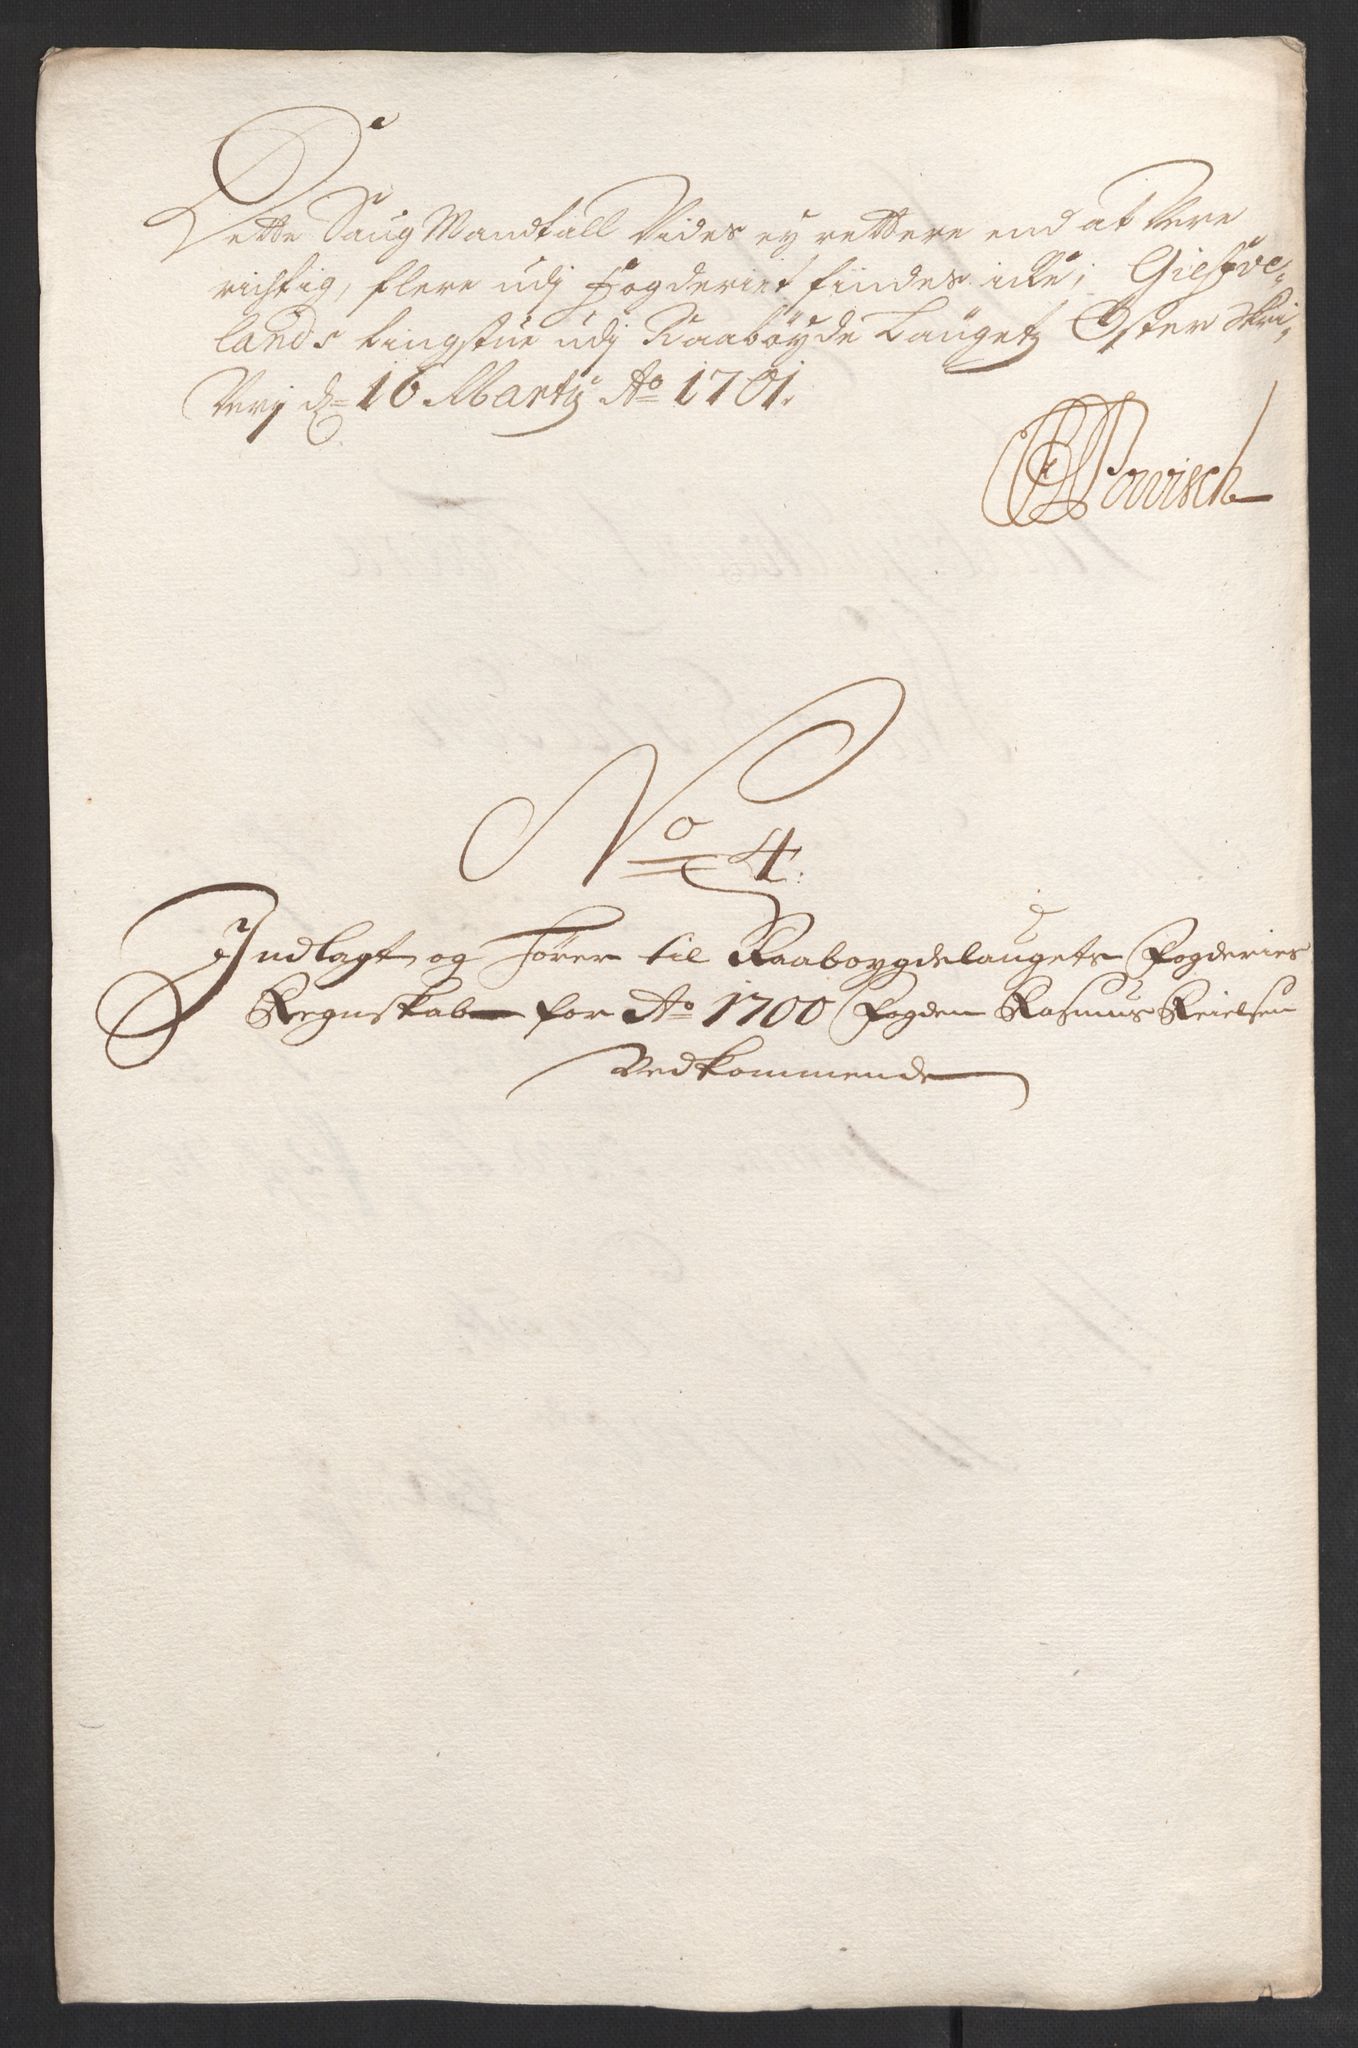 Dette Saug Mandtall Vides ey rettere end at Vere
richtig, flere udj Fogderiet findes icke, Gielsøve„
lands tingstue udj Raabøyde Lauget Øster Skri„
Verj d. 16 Martij Ao 1701.
Powisch
No 4.
Indlagt og hører til Raaboygdelaugets Fogderies
Regnskab for Ao 1700 Fogden Rasmus Keielsen
Vedkommende